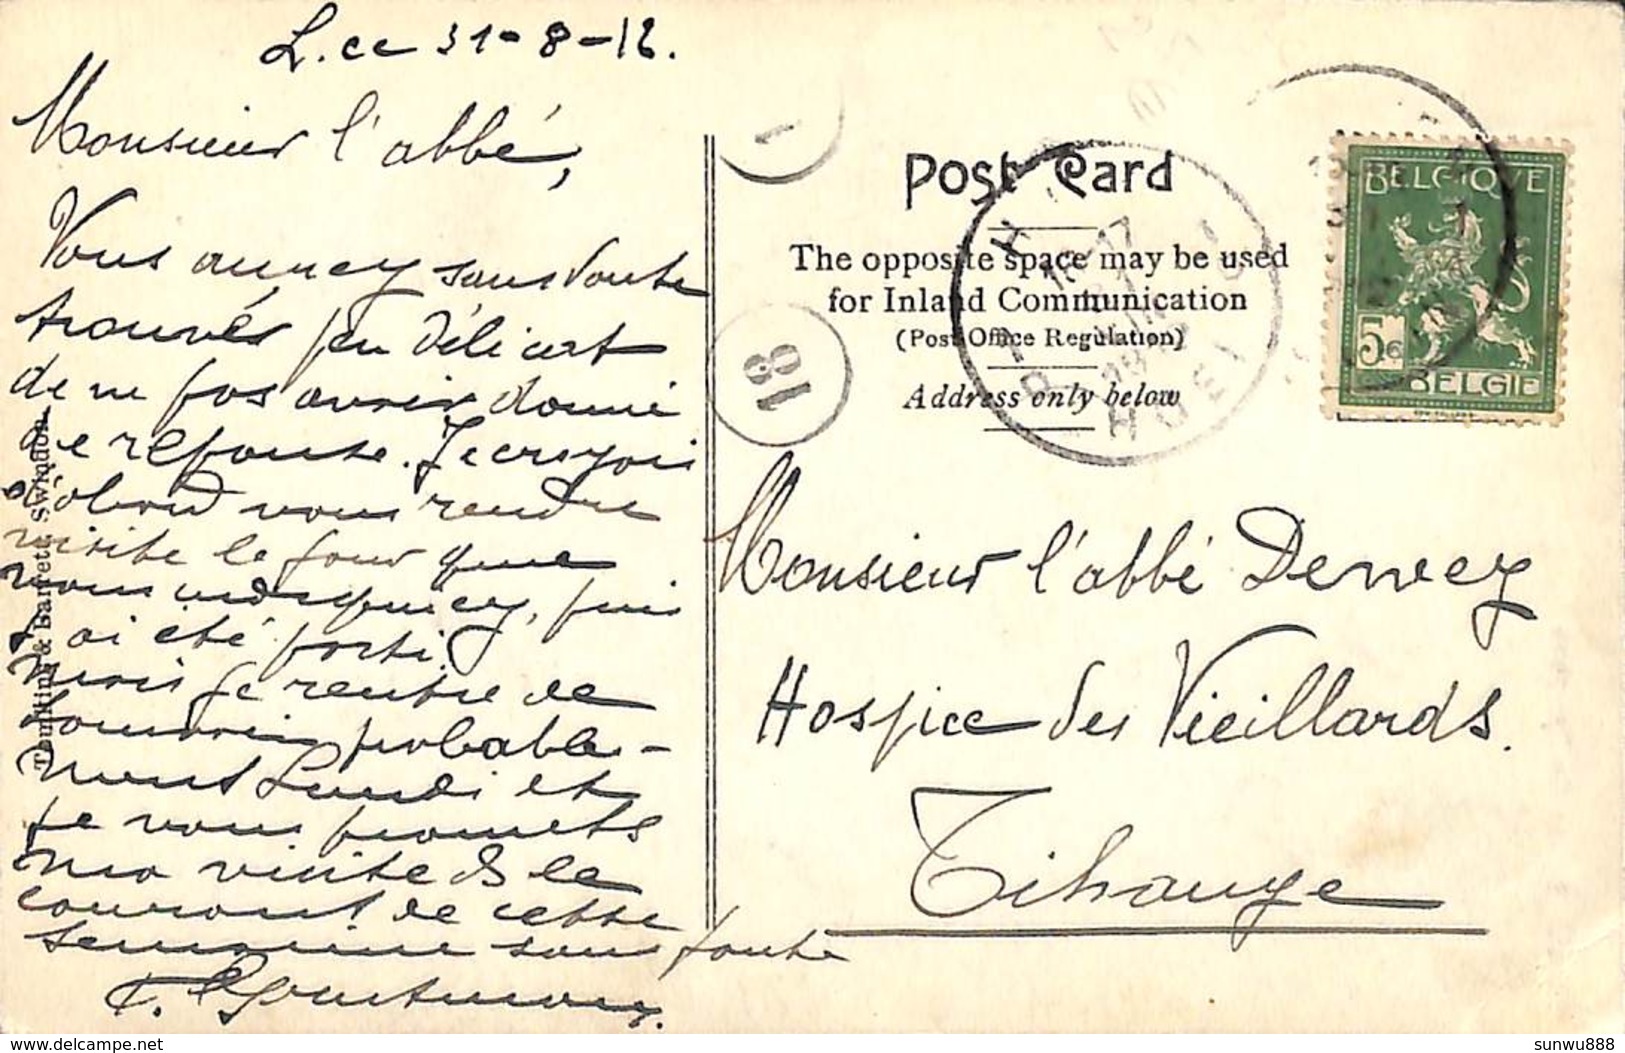 L.ce 31-8-12.
Monsieur l'abbé,
Vous aurez sans doute
trouvés peu délicat
de ne pas avoir donné
de réponse. Je croyais
d'abord vous rendre
visite le jour que
vous indiquiez, puis
j'ai été parti.
Mais je rentre de
probable-
ment Lundi et
je vous promets
ma visite ds le
courant de cette
semaine sans faute
Tomkins & Barrett, Swindon
Post Card
The opposite space may be used
for Inland Communication
(Post Office Regulation)
Address only below
18
1
HUY
HOEI
BELGIQUE
5c
BELGIË
Monsieur l'abbé Dewez
Hospice des Vieillards.
Tihange
delcampe.net
sunwu888